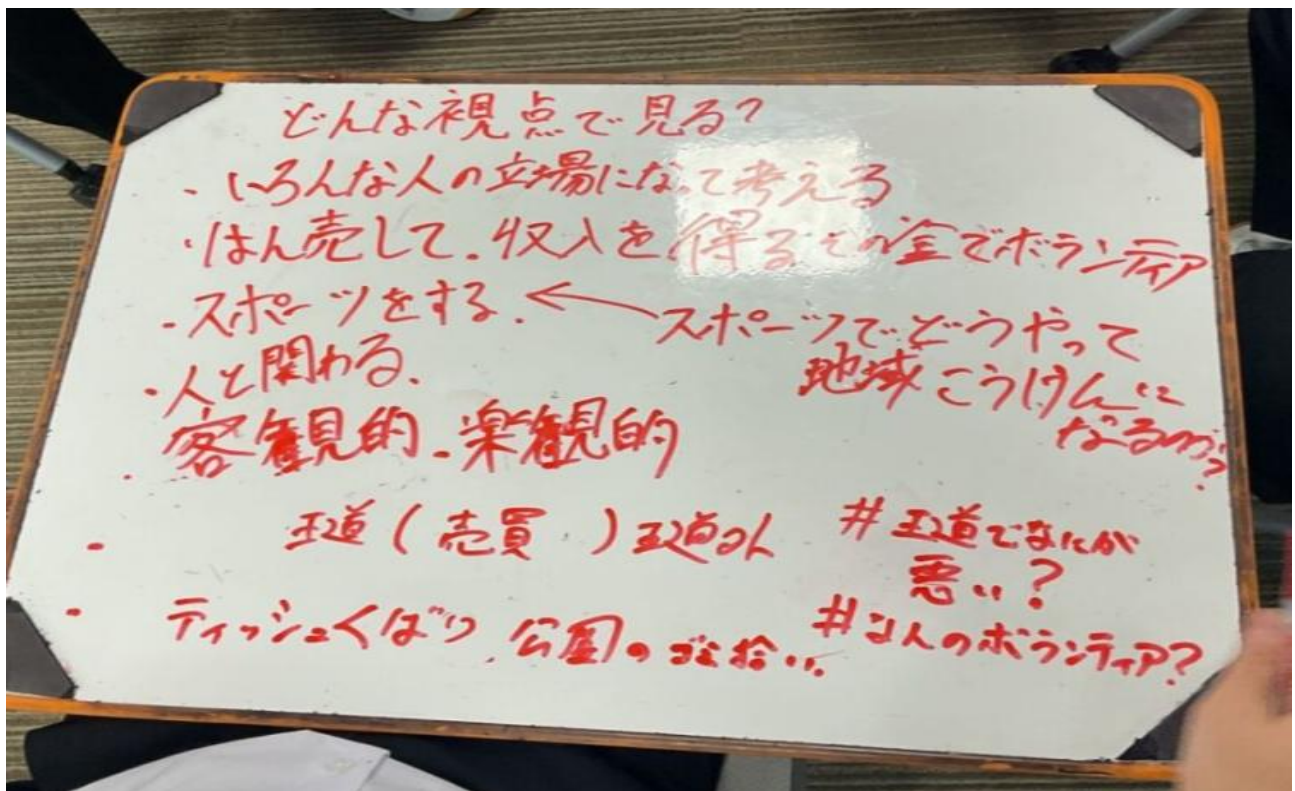 どんな視点で見る?
・いろんな人の立場になって考える
・はん売して.収入を得るその金でボランティア
・スポーツをする. ← スポーツでどうやって
地域こうけんに
なるのか?
・人と関わる.
・客観的.楽観的
・王道(売買)王道外 #王道でなにが
悪い?
・ティッシュくばり 公園のゴミ拾い. #なんのボランティア?